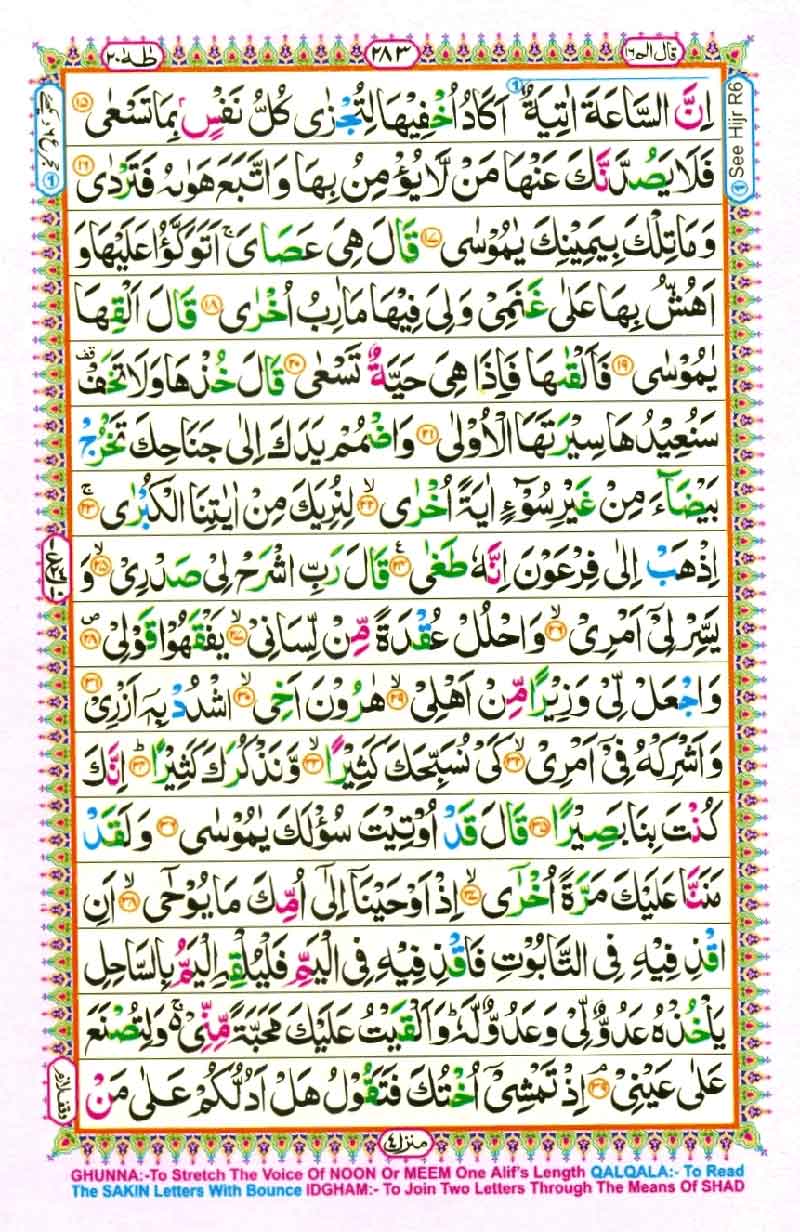 قال الم ١٦
٢٨٣
طٰهٰ ٢٠
See Hijr R6
اِنَّ السَّاعَةَ اٰتِيَةٌ اَكَادُ اُخْفِيْهَا لِتُجْزٰى كُلُّ نَفْسٍۭ بِمَا تَسْعٰى ﴿۱۵﴾
فَلَا يَصُدَّنَّكَ عَنْهَا مَنْ لَّا يُؤْمِنُ بِهَا وَاتَّبَعَ هَوٰىهُ فَتَرْدٰى ﴿۱۶﴾
وَمَا تِلْكَ بِيَمِيْنِكَ يٰمُوْسٰى ﴿۱۷﴾ قَالَ هِىَ عَصَاىَ ۚ اَتَوَكَّؤُا عَلَيْهَا وَ
اَهُشُّ بِهَا عَلٰى غَنَمِىْ وَلِىَ فِيْهَا مَاٰرِبُ اُخْرٰى ﴿۱۸﴾ قَالَ اَلْقِهَا
يٰمُوْسٰى ﴿۱۹﴾ فَاَلْقٰىهَا فَاِذَا هِىَ حَيَّةٌ تَسْعٰى ﴿۲۰﴾ قَالَ خُذْهَا وَلَا تَخَفْ قف
سَنُعِيْدُهَا سِيْرَتَهَا الْاُوْلٰى ﴿۲۱﴾ وَاضْمُمْ يَدَكَ اِلٰى جَنَاحِكَ تَخْرُجْ
بَيْضَآءَ مِنْ غَيْرِ سُوْٓءٍ اٰيَةً اُخْرٰى ۙ﴿۲۲﴾ لِنُرِيَكَ مِنْ اٰيٰتِنَا الْكُبْرٰى ۚ﴿۲۳﴾
اِذْهَبْ اِلٰى فِرْعَوْنَ اِنَّهٗ طَغٰى ﴿۲۴﴾ قَالَ رَبِّ اشْرَحْ لِىْ صَدْرِىْ ۙ﴿۲۵﴾ وَ
يَسِّرْ لِىْٓ اَمْرِىْ ۙ﴿۲۶﴾ وَاحْلُلْ عُقْدَةً مِّنْ لِّسَانِىْ ۙ﴿۲۷﴾ يَفْقَهُوْا قَوْلِىْ ۪﴿۲۸﴾
وَاجْعَلْ لِّىْ وَزِيْرًا مِّنْ اَهْلِىْ ۙ﴿۲۹﴾ هٰرُوْنَ اَخِى ۙ﴿۳۰﴾ اشْدُدْ بِهٖٓ اَزْرِىْ ۙ﴿۳۱﴾
وَاَشْرِكْهُ فِىْٓ اَمْرِىْ ۙ﴿۳۲﴾ كَىْ نُسَبِّحَكَ كَثِيْرًا ۙ﴿۳۳﴾ وَّنَذْكُرَكَ كَثِيْرًا ؕ﴿۳۴﴾ اِنَّكَ
كُنْتَ بِنَا بَصِيْرًا ﴿۳۵﴾ قَالَ قَدْ اُوْتِيْتَ سُؤْلَكَ يٰمُوْسٰى ﴿۳۶﴾ وَلَقَدْ
مَنَنَّا عَلَيْكَ مَرَّةً اُخْرٰٓى ۙ﴿۳۷﴾ اِذْ اَوْحَيْنَآ اِلٰٓى اُمِّكَ مَا يُوْحٰٓى ۙ﴿۳۸﴾ اَنِ
اقْذِفِيْهِ فِى التَّابُوْتِ فَاقْذِفِيْهِ فِى الْيَمِّ فَلْيُلْقِهِ الْيَمُّ بِالسَّاحِلِ
يَاْخُذْهُ عَدُوٌّ لِّىْ وَعَدُوٌّ لَّهٗ ؕ وَاَلْقَيْتُ عَلَيْكَ مَحَبَّةً مِّنِّىْ ۚ۬ وَلِتُصْنَعَ
عَلٰى عَيْنِىْ ۘ﴿۳۹﴾ اِذْ تَمْشِىْٓ اُخْتُكَ فَتَقُوْلُ هَلْ اَدُلُّكُمْ عَلٰى مَنْ
منزل ٤
GHUNNA:-To Stretch The Voice Of NOON Or MEEM One Alif's Length QALQALA:- To Read
The SAKIN Letters With Bounce IDGHAM:- To Join Two Letters Through The Means Of SHAD